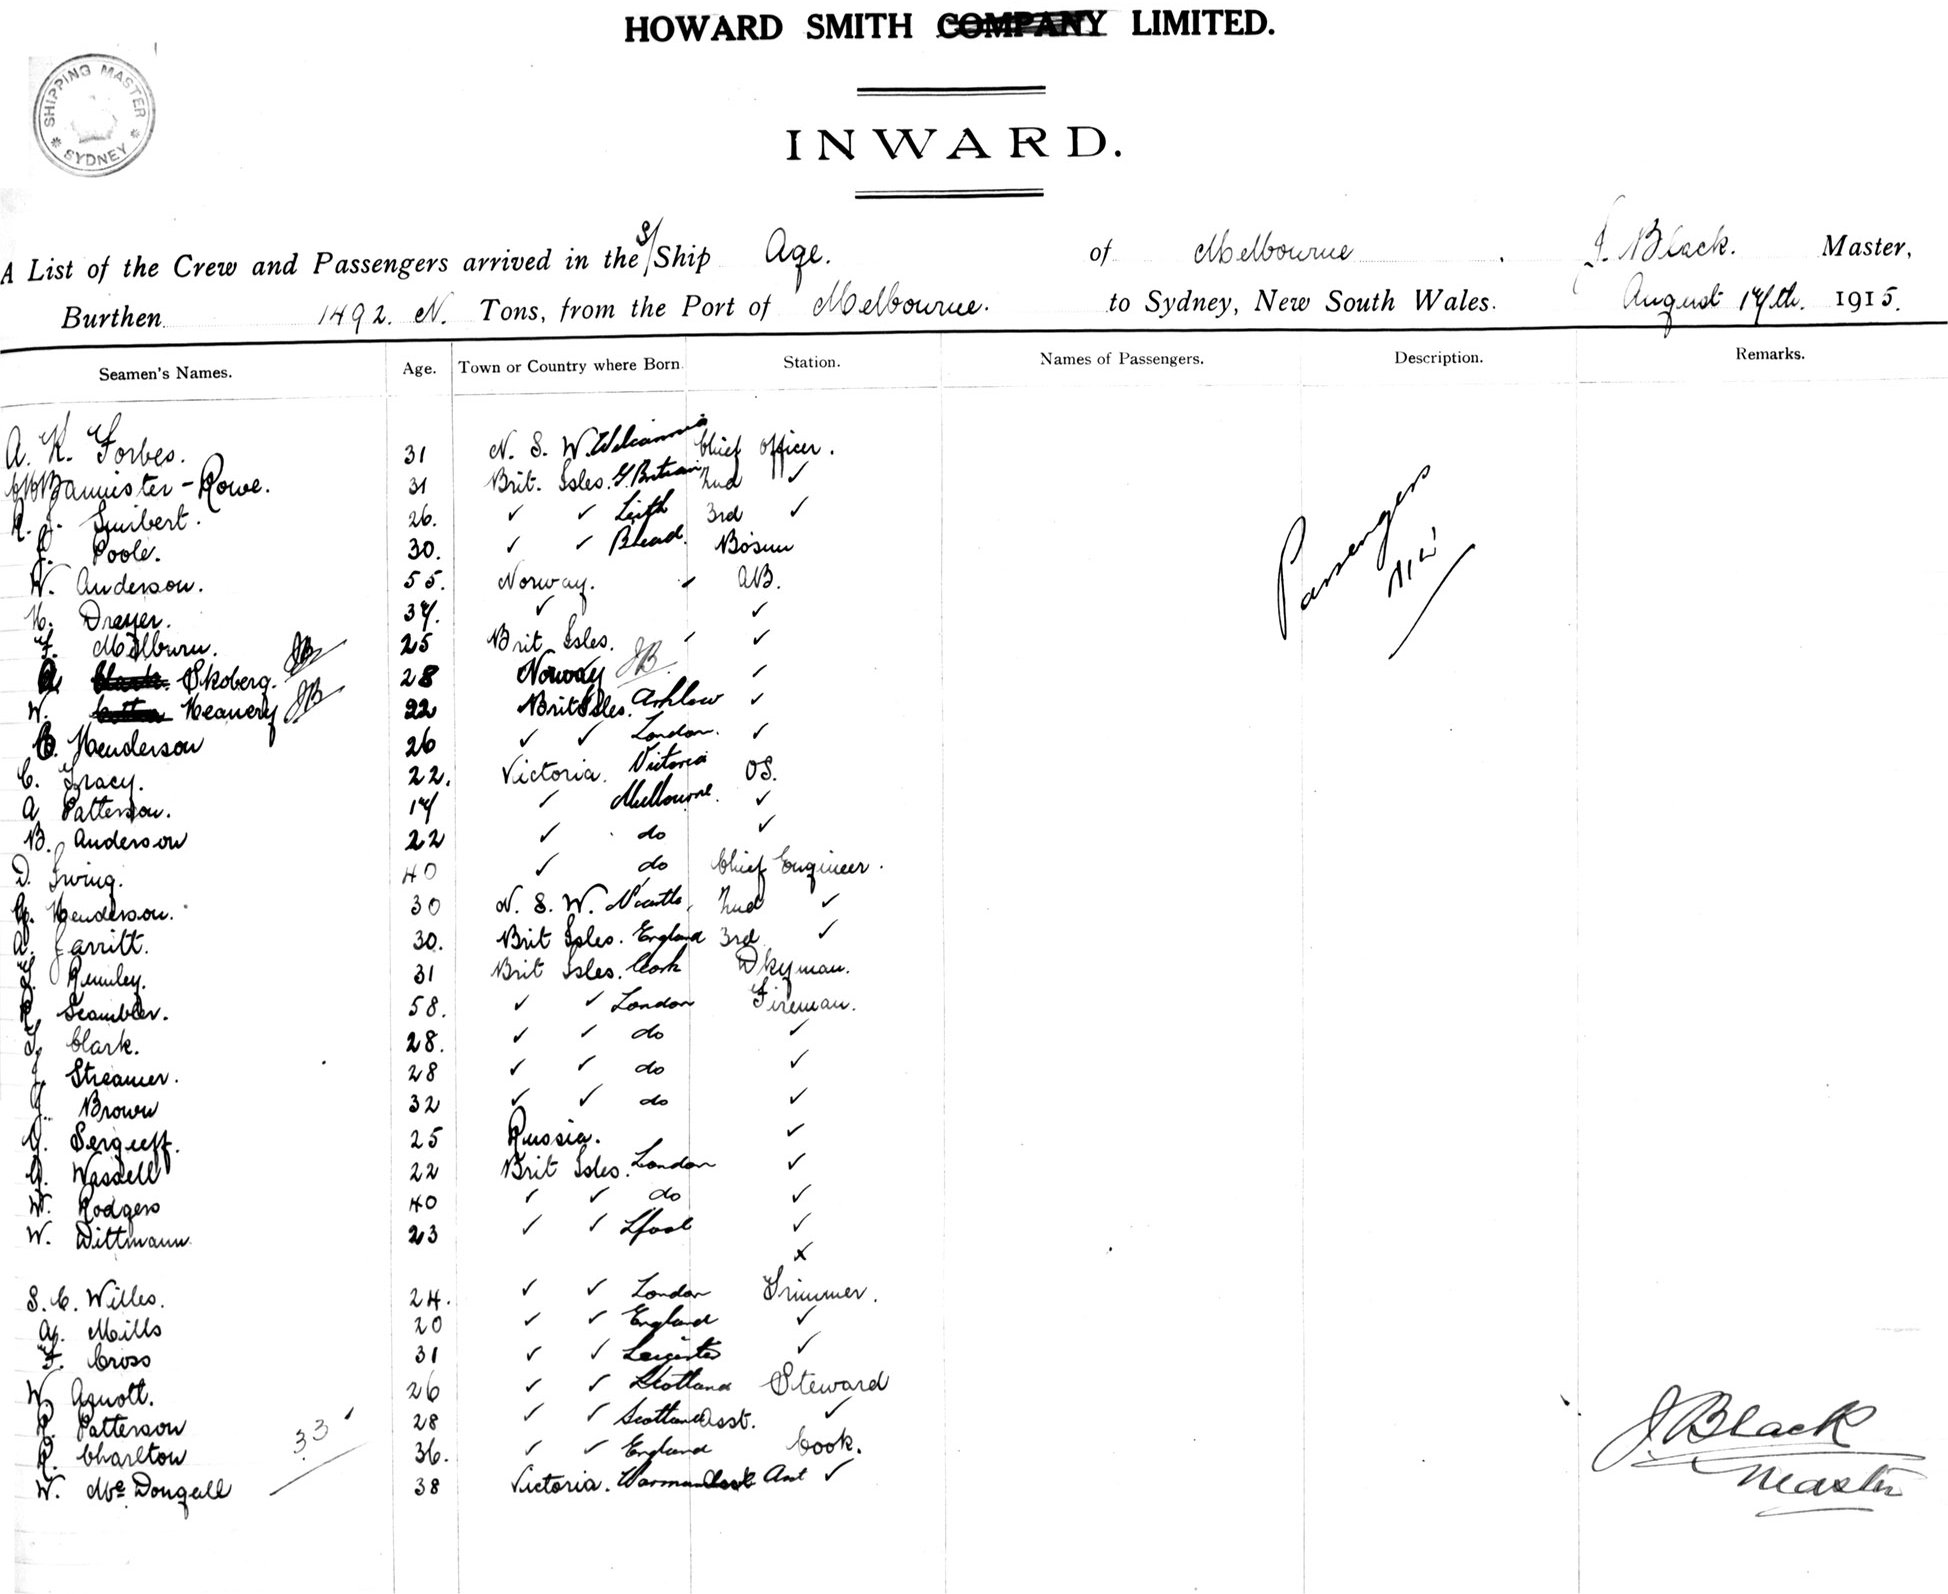 HOWARD SMITH COMPANY LIMITED.
SHIPPING MASTER SYDNEY
INWARD.
A List of the Crew and Passengers arrived in the S/Ship Age. of Melbourne. J. Black. Master,
Burthen 1492. N. Tons, from the Port of Melbourne. to Sydney, New South Wales. August 17th. 1915.
Seamen's Names. Age. Town or Country where Born. Station. Names of Passengers. Description. Remarks.
A. K. Forbes. 31 N. S. W. Wilcannia Chief Officer.
Bannister-Rowe. 31 Brit. Isles. G Britain 2nd ✓
R. J. Smibert. 26. ✓ ✓ Leith 3rd ✓
J. Poole. 30. ✓ ✓ Bosun
W. Anderson. 55. Norway. AB.
H. Dreyer. 37. ✓ ✓
F. Milburn. 25 Brit Isles. ✓
Skoberg. JB 28 Norway JB ✓
W. Heanery JB 22 Brit Isles. Arklow ✓
Henderson 26 ✓ ✓ London. ✓
C. Tracy. 22. Victoria. Victoria OS.
A Patterson. 17 ✓ Melbourne. ✓
B. Anderson 22 ✓ do ✓
D. Ewing. 40 ✓ do Chief Engineer.
Henderson. 30 N. S. W. 2nd ✓
A. Jarritt. 30. Brit Isles. England 3rd ✓
Rumley. 31 Brit Isles. Cork Dkyman.
R. Scambler. 58. ✓ ✓ London Fireman.
Clark. 28. ✓ ✓ do ✓
J. Streamer. 28 ✓ ✓ do ✓
J. Brown 32 ✓ ✓ do ✓
Sergueff. 25 Russia. ✓
Wassell 22 Brit Isles. London ✓
W. Rodgers 40 ✓ ✓ do ✓
W. Dittmann 23 ✓ ✓ L'pool ✓
x
S. C. Willes. 24. ✓ ✓ London Trimmer.
Mills 20 ✓ ✓ England ✓
F. Cross 31 ✓ ✓ Leicester ✓
W. Arnott. 26 ✓ ✓ Scotland Steward
R. Patterson 28 ✓ ✓ Scotland Asst. ✓
R. Charlton 36. ✓ ✓ England Cook.
W. McDougall 38 Victoria. Ast ✓
33
Passengers
Nil
J Black
Master